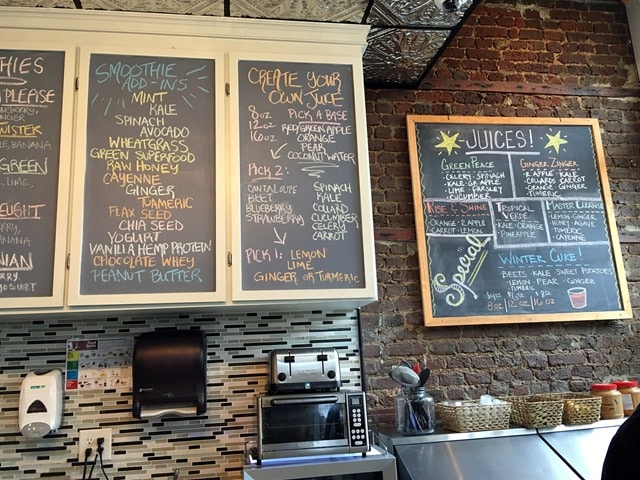 HIES
PLEASE
WISTER
BANANA
GREEN
LIME,
SMOOTHIE
ADD-INS
MINT
KALE
SPINACH
AVOCADO
WHEATGRASS
GREEN SUPERFOOD
RAW HONEY
CAYENNE
GINGER
TURMERIC
FLAX SEED
CHIA SEED
YOGURT
VANILLA HEMP PROTEIN
CHOCOLATE WHEY
PEANUT BUTTER
CREATE YOUR
OWN JUICE
8oz
12oz
16oz
PICK A BASE
RED/GREEN APPLE
ORANGE
PEAR
COCONUT WATER
PICK 2:
CANTALOUPE
BEET
BLUEBERRY
STRAWBERRY
SPINACH
KALE
COLLARD
CUCUMBER
CELERY
CARROT
PICK 1: LEMON
LIME
GINGER OR TURMERIC
JUICES!
GREEN PEACE
CELERY · SPINACH
KALE · GR. APPLE
LIME · PARSLEY
CUCUMBER
GINGER ZINGER
R. APPLE · KALE
COLLARDS · CARROT
ORANGE · GINGER
TURMERIC
RISE & SHINE
ORANGE · R. APPLE
CARROT · LEMON
TROPICAL
VERDE
KALE · ORANGE
PINEAPPLE
MASTER CLEANSE
LEMON · GINGER
HONEY · AGAVE
TURMERIC
CAYENNE
Special
WINTER CURE!
BEETS · KALE · SWEET POTATOES
LEMON · PEAR · GINGER
TURMERIC
8oz 12oz 16oz